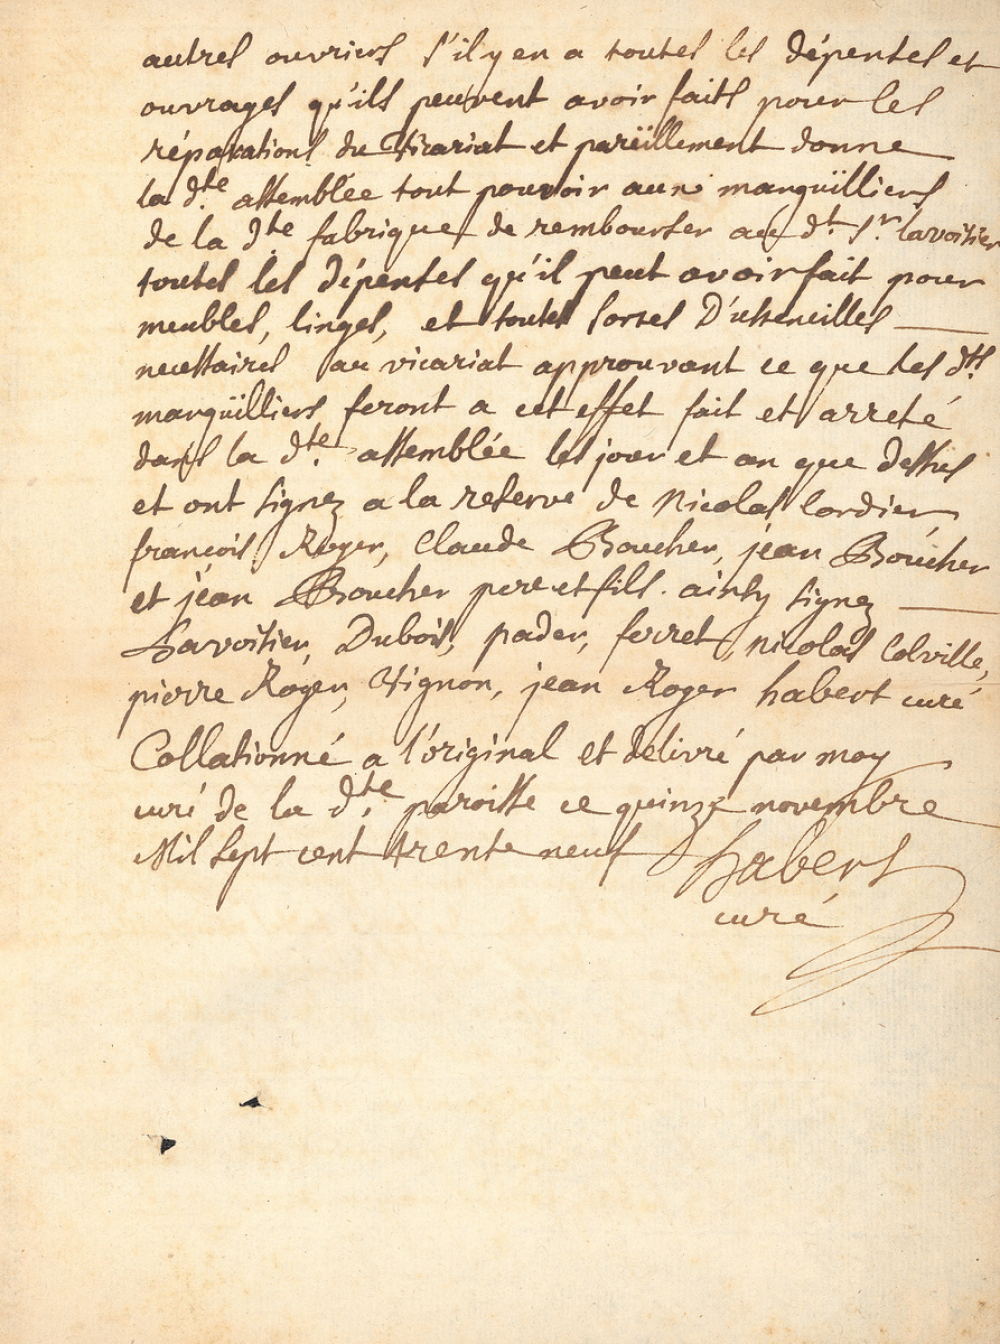 autres ouvriers s'il y en a toutes les dépenses et
ouvrages qu'ils peuvent avoir faits pour les
réparations du Vicariat et pareïllement donne
la dte assemblée tout pouvoir aux marguïlliers
de la dte fabrique de rembourser au dt Sr. lavoisier
toutes les dépenses qu'il peut avoir fait pour
meubles, linges, et toutes sortes D'ustencilles
necessaires au vicariat approuvant ce que les dts
marguïlliers feront a cet effet fait et arreté
dans la dte. assemblée les jour et an que dessus
et ont signez a la reserve de Nicolas Cordier,
françois Roger, Claude Boucher, jean Boucher
et jean Boucher pere et fils. ainsy signez
Lavoisier, Dubois, pader, ferret, nicolas Colville,
pierre Roger, Vignon, jean Roger habert curé
Collationné a l'original et delivré par moy
curé de la dte. paroisse ce quinze novembre
Mil sept cent trente neuf habert
curé